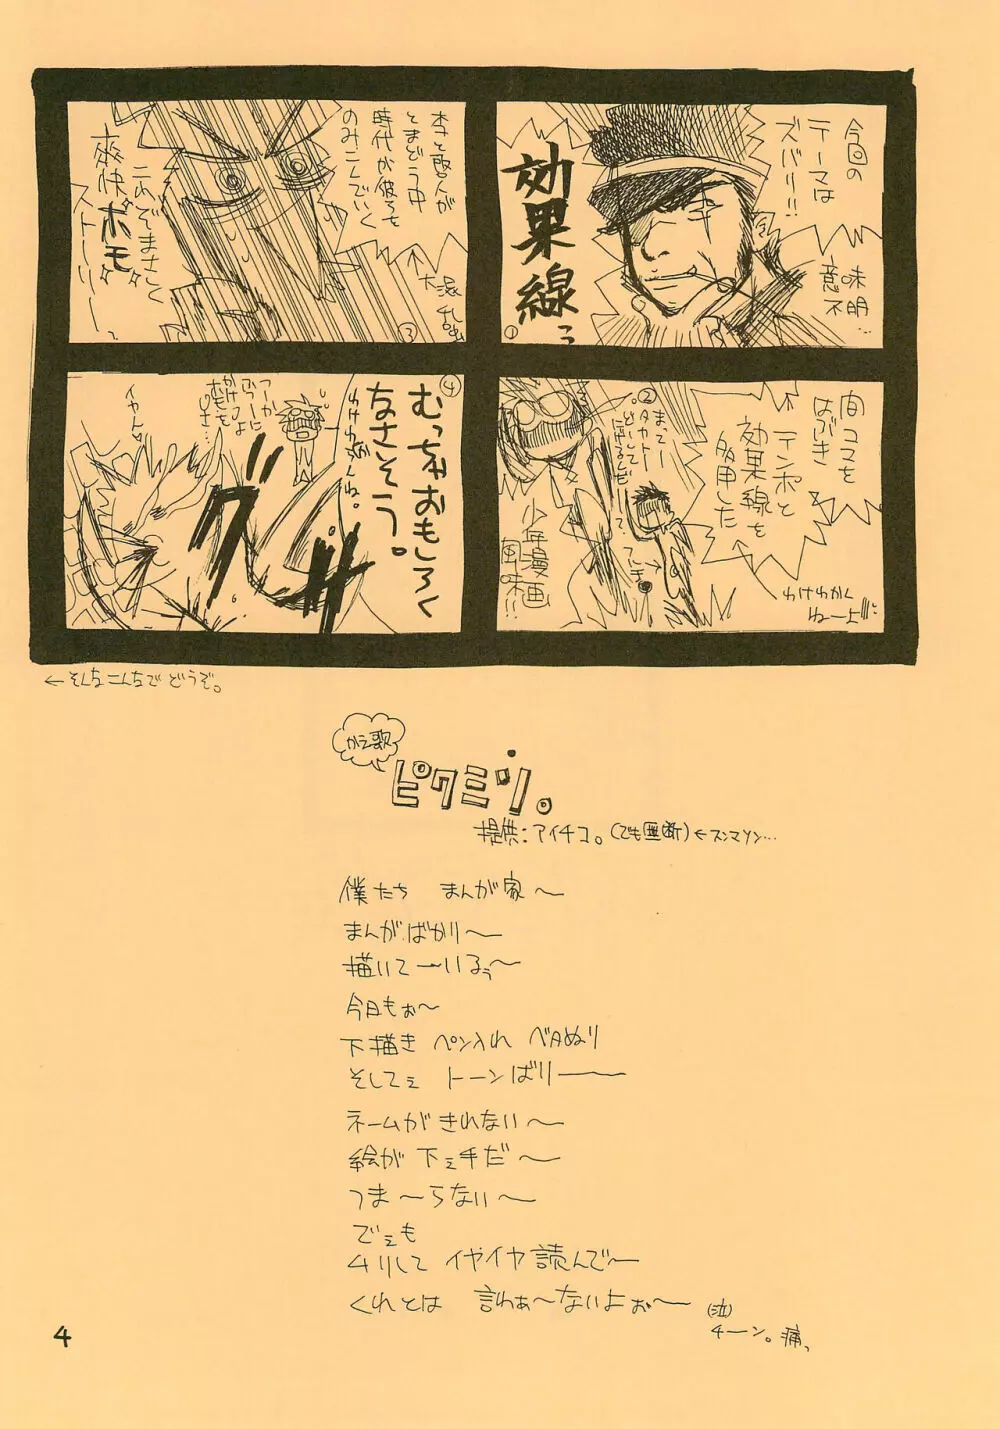 今回の
テーマは
ズバリ!!
効果線っ
意味不明…
①
間コマを
はぶき
テンポと
効果線を
多用した
②
まってー
タカトー
どーして
にげるんだ
少年漫画
風味!!
わけわかく
ねーよ!!
本と閲んが
とまどう中
時代が彼らを
のみこんでいく
③
これぞまさしく
爽快ホモ
ストーリーっ
④
むっちゃおもしろく
なさそう。
わけわかんね。
つーか
フツーに
かけるよ
おもうも
グサ
イヤん
←そんなこんなでどうぞ。
かえ歌
ピクミン。
提供:アイチコ。(でも無断)←スンマソン…
僕たち まんが家〜
まんがばかり〜
描いてーいるぅ〜
今日もぉ〜
下描き ペン入れ ベタぬり
そしてぇ トーンばりー
ネームがきれない〜
絵が 下ぇ手だ〜
つま〜らない〜
でぇも
ムリして イヤイヤ読んで〜
くれとは 言わぁ〜ないよぉ〜
(泣)
チーン。痛っ
4